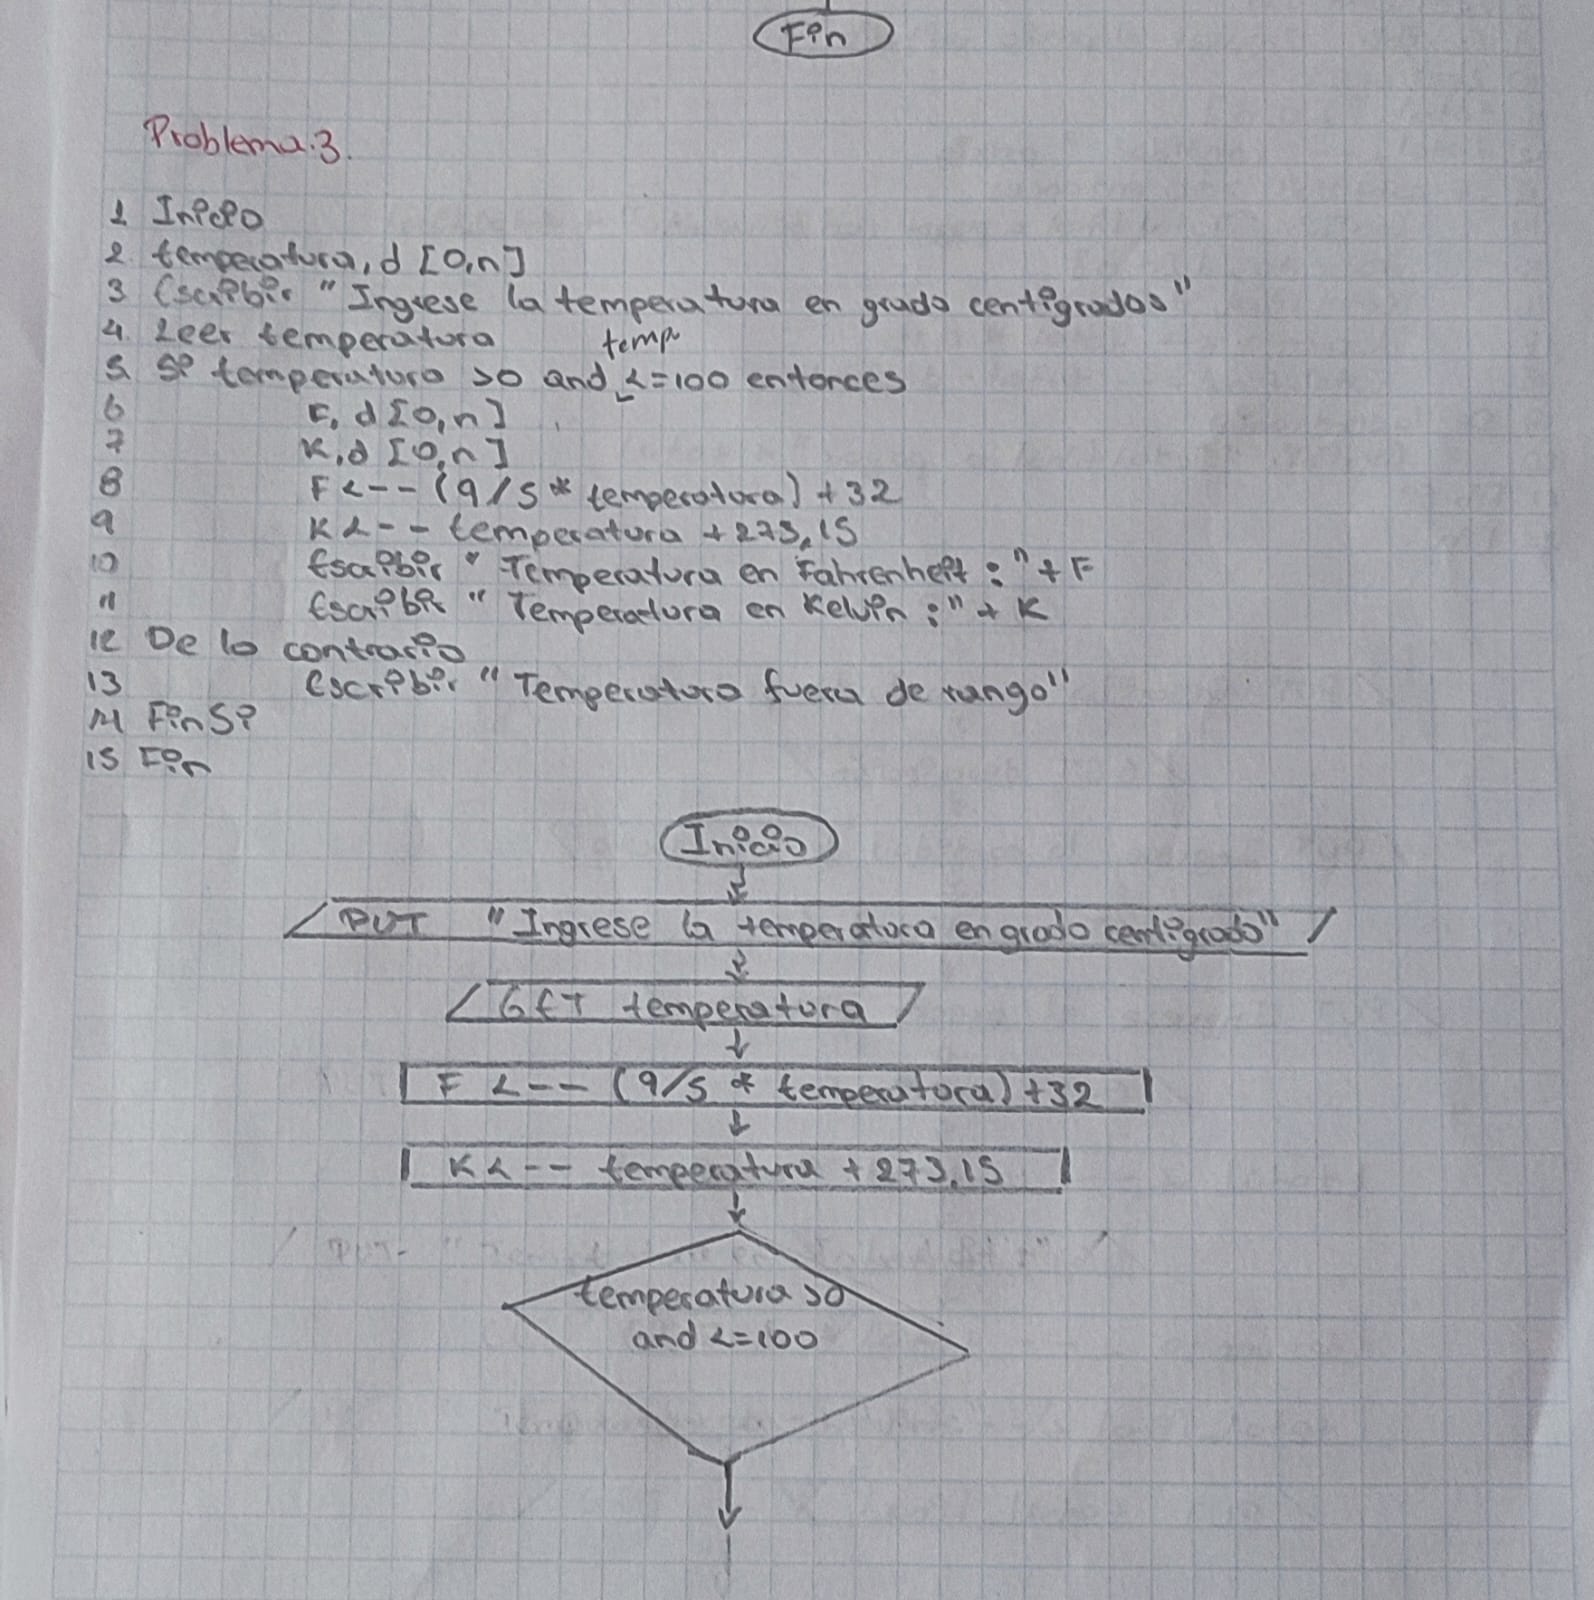 Fin
Problema.3.
1 Inicio
2. temperatura, d [0,n]
3 Escribir "Ingrese la temperatura en grado centigrados"
4. Leer temperatura
temp
5. Si temperatura >0 and <=100 entonces
6 F, d [0,n]
7 K, d [0,n]
8 F <-- (9/5 * temperatura) + 32
9 K <-- temperatura + 273,15
10 Escribir "Temperatura en Fahrenheit :" + F
11 Escribir "Temperatura en Kelvin :" + K
12 De lo contrario
13 Escribir "Temperatura fuera de rango"
14 FinSi
15 Fin
Inicio
PUT "Ingrese la temperatura en grado centigrado"
GET temperatura
F <-- (9/5 * temperatura) +32
K <-- temperatura + 273,15
temperatura >0
and <=100